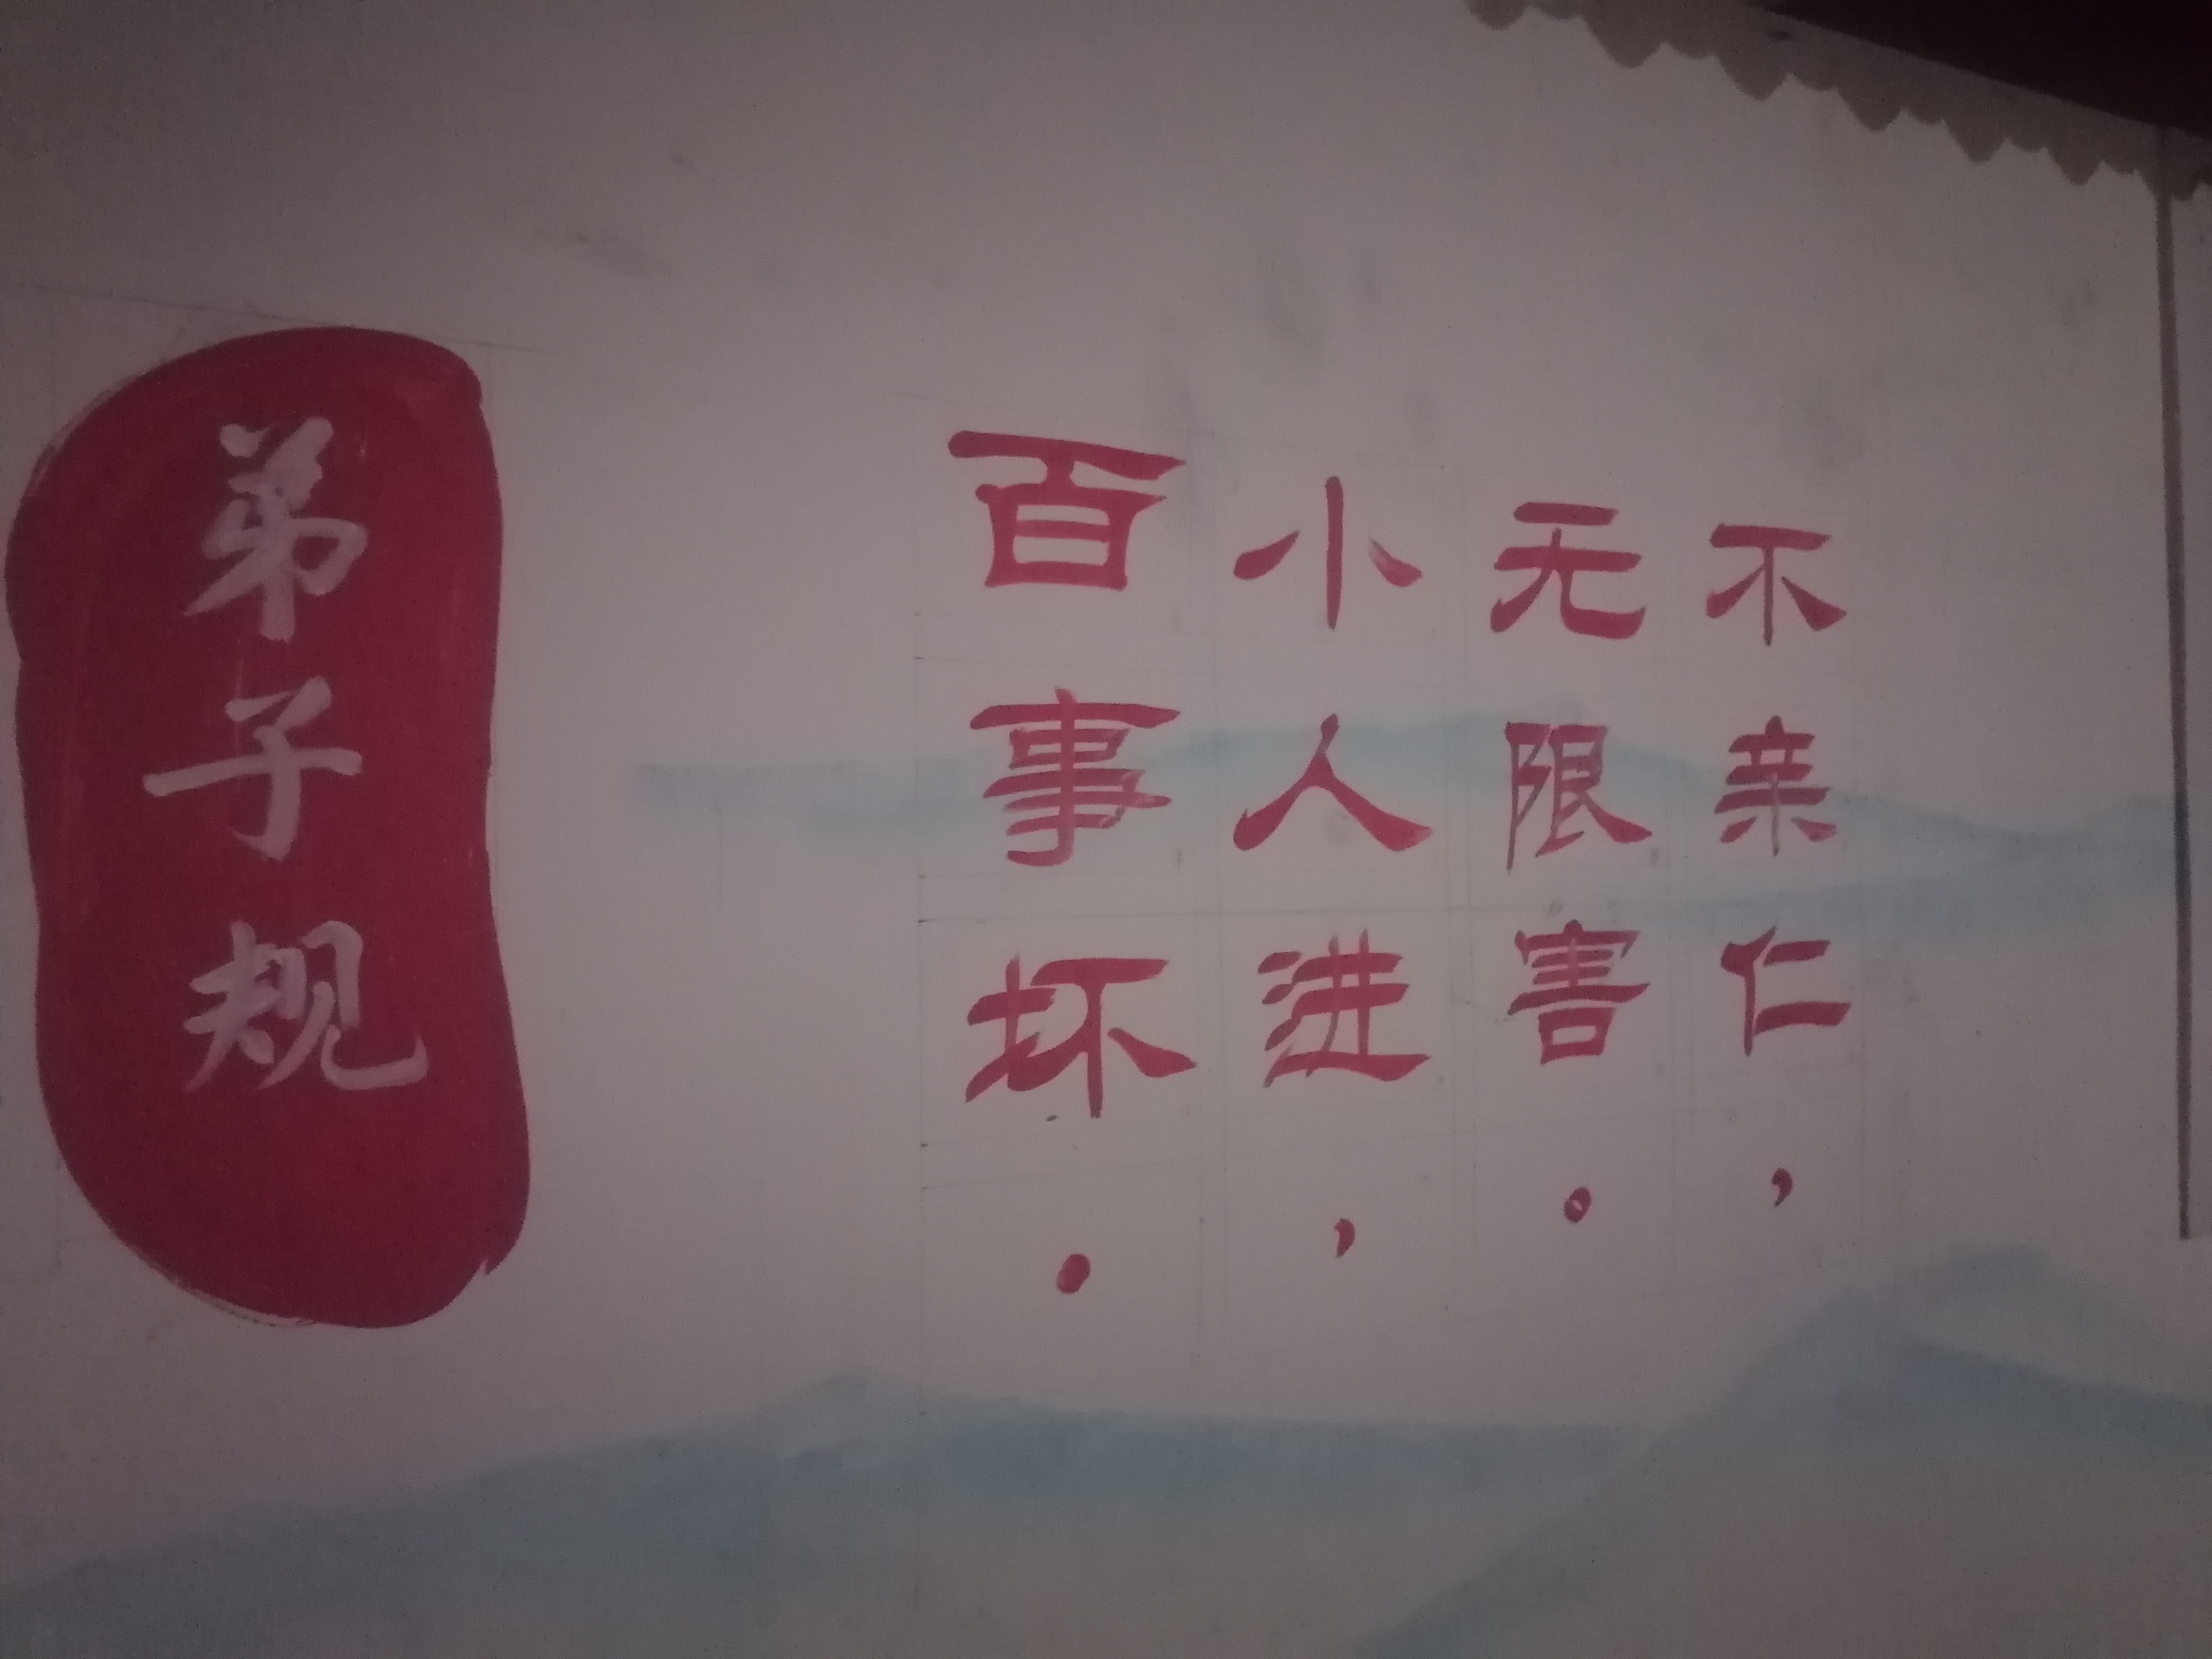 不亲仁，
无限害。
小人进，
百事坏。
弟子规